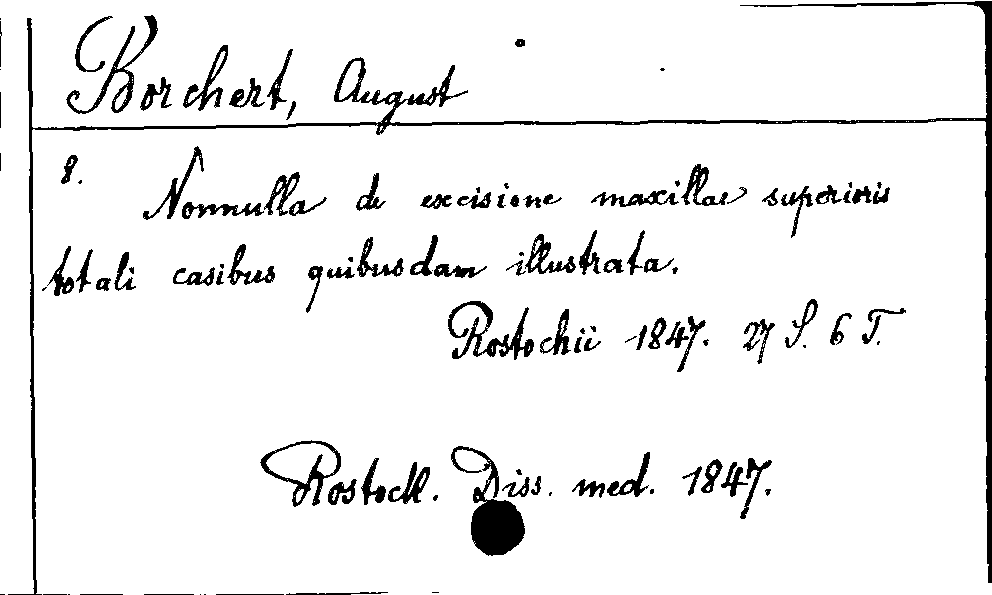 Borchert, August
8.
Nonnulla de excisione maxillae superioris
totali casibus quibusdam illustrata.
Rostochii 1847. 27 S. 6 T.
Rostock. Diss. med. 1847.